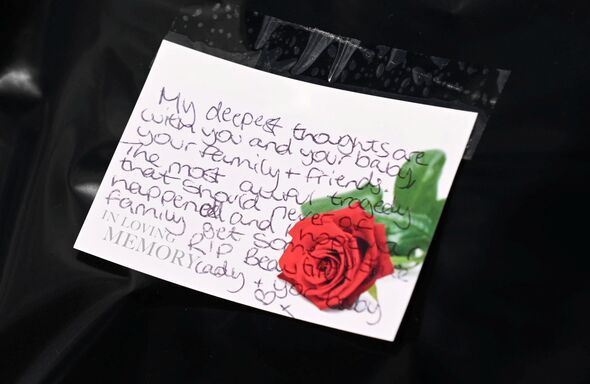 My deepest thoughts are
with you and your baby
your family + friends.
The most awful tragedy
that should never of
happened and
family get some
IN LOVING
MEMORY
R.I.P
Lady + your baby
X